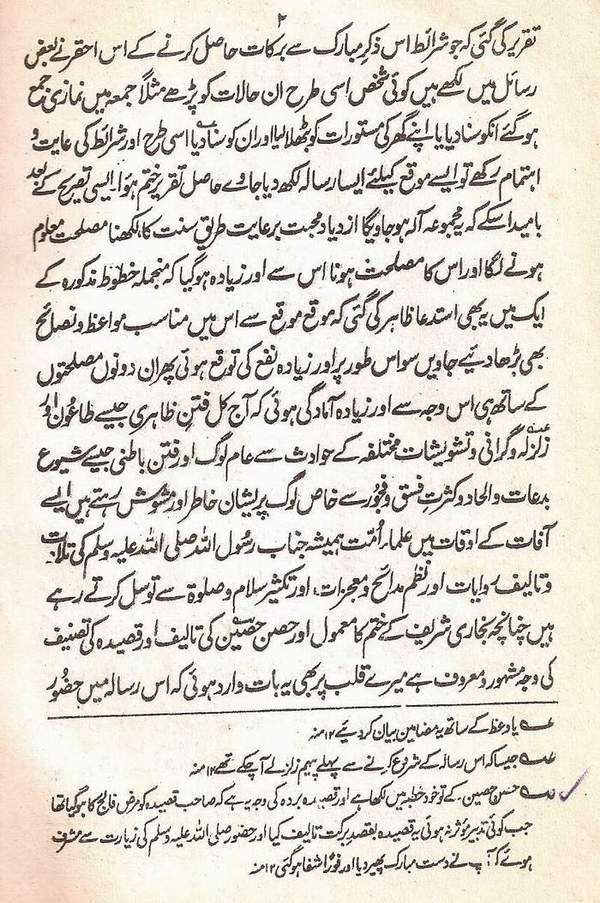 ۲
تقریر کی گئی کہ جو شرائط اس ذکر مبارک سے برکات حاصل کرنے کے اس احقر نے بعض
رسائل میں لکھے ہیں کوئی شخص اسی طرح ان حالات کو پڑھے مثلاً جمعہ میں نمازی جمع
ہو گئے انکو سنا دیا یا اپنے گھر کی مستورات کو بٹھلا لیا اور ان کو سنا دیا اسی طرح اور شرائط کی رعایت و
اہتمام رکھے تو ایسے موقع کیلئے ایسا رسالہ لکھ دیا جاوے حاصل تقریر ختم ہوا ایسی تصریح کے بعد
بامید اسکے کہ یہ مجموعہ آلہ ہو جاویگا ازدیاد محبت برعایت طریق سنت کا، لکھنا مصلحت معلوم
ہونے لگا اور اس کا مصلحت ہونا اس سے اور زیادہ ہوگیا کہ منجملہ خطوط مذکورہ کے
ایک میں یہ بھی استدعا ظاہر کی گئی کہ موقع موقع سے اس میں مناسب مواعظ و نصائح
بھی بڑھا دیئے جاویں سو اس طور پر اور زیادہ نفع کی توقع ہوئی پھر ان دونوں مصلحتوں
کے ساتھ ہی اس وجہ سے اور زیادہ آمادگی ہوئی کہ آج کل فتن ظاہری جیسے طاعون اور
زلزلہ و گرانی و تشویشات مختلفہ کے حوادث سے عام لوگ اور فتن باطنی جیسے شیوع
بدعات و الحاد و کثرت فسق و فجور سے خاص لوگ پریشان خاطر اور مشوش رہتے ہیں ایسے
آفات کے اوقات میں علماء امت ہمیشہ جناب رسول اللہ صلی اللہ علیہ وسلم کی تلاوت
و تالیف روایات اور نظم مدائح و معجزات، اور تکثیر سلام و صلوٰۃ سے توسل کرتے رہے
ہیں چنانچہ بخاری شریف کے ختم کا معمول اور حصن حصین کی تالیف اور قصیدہ کی تصنیف
کی وجہ مشہور و معروف ہے میرے قلب پر بھی یہ بات وارد ہوئی کہ اس رسالہ میں حضور
عہ یا وعظ کے ساتھ یہ مضامین بیان کر دیئے ۱۲ منہ
عہ جیسا کہ اس رسالہ کے شروع کرنے سے پہلے پیہم زلزلے آچکے تھے ۱۲ منہ
حسن حصین کے تو خود خطبہ میں لکھا ہے اور قصیدہ بردہ کی وجہ یہ ہے کہ صاحب قصیدہ کو مرض فالج کا ہو گیا تھا
جب کوئی تدبیر مؤثر نہ ہوئی یہ قصیدہ بقصد برکت تالیف کیا اور حضور صلی اللہ علیہ وسلم کی زیارت سے مشرف
ہوئے کہ آپ نے دست مبارک پھیر دیا اور فوراً شفا ہو گئی ۱۲ منہ